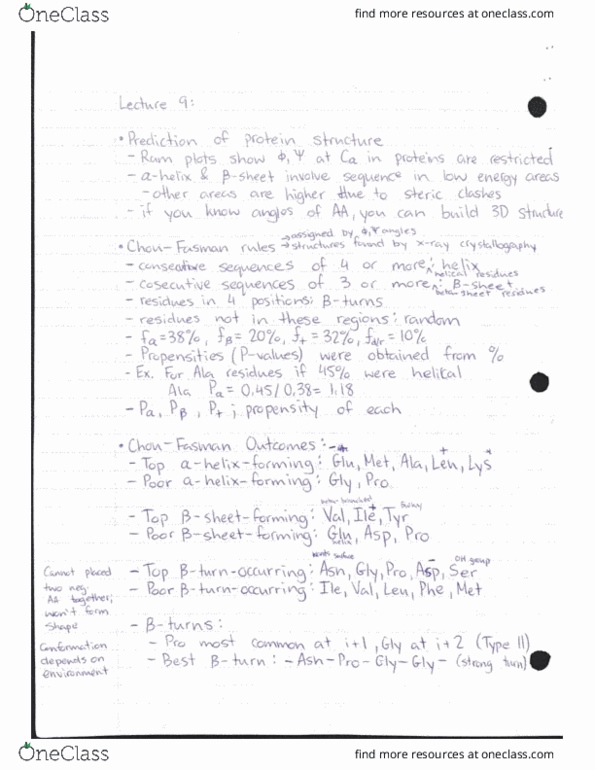 OneClass
find more resources at oneclass.com
Lecture 9:
• Prediction of protein structure
- Ram plots show Φ,Ψ at Cα in proteins are restricted
- α-helix & β-sheet involve sequence in low energy areas
- other areas are higher due to steric clashes
- if you know angles of AA, you can build 3D structure
→ assigned by Φ,Ψ angles
• Chou-Fasman rules → structures found by x-ray crystallography
- consecutive sequences of 4 or more: helix
helical residues
- cosecutive sequences of 3 or more: β-sheet
beta sheet residues
- residues in 4 positions: β-turns
- residues not in these regions: random
- fα=38%, fβ=20%, ft=32%, fd/r=10%
- Propensities (P-values) were obtained from %
- Ex. For Ala residues if 45% were helical
Ala Pα = 0.45/0.38 = 1.18
- Pα, Pβ, Pt ; propensity of each
• Chou-Fasman Outcomes:
- Top α-helix-forming: Glu, Met, Ala, Leu, Lys
- Poor α-helix-forming: Gly, Pro
- Top β-sheet-forming: Val, Ile, Tyr
- Poor β-sheet-forming: Glu, Asp, Pro
helix
surface
OH group
- Top β-turn-occurring: Asn, Gly, Pro, Asp, Ser
- Poor β-turn-occurring: Ile, Val, Leu, Phe, Met
Cannot placed
two neg.
AA together;
won't form
shape
- β-turns:
- Pro most common at i+1, Gly at i+2 (Type II)
- Best β-turn: -Asn-Pro-Gly-Gly- (strong turn)
Conformation
depends on
environment
OneClass
find more resources at oneclass.com